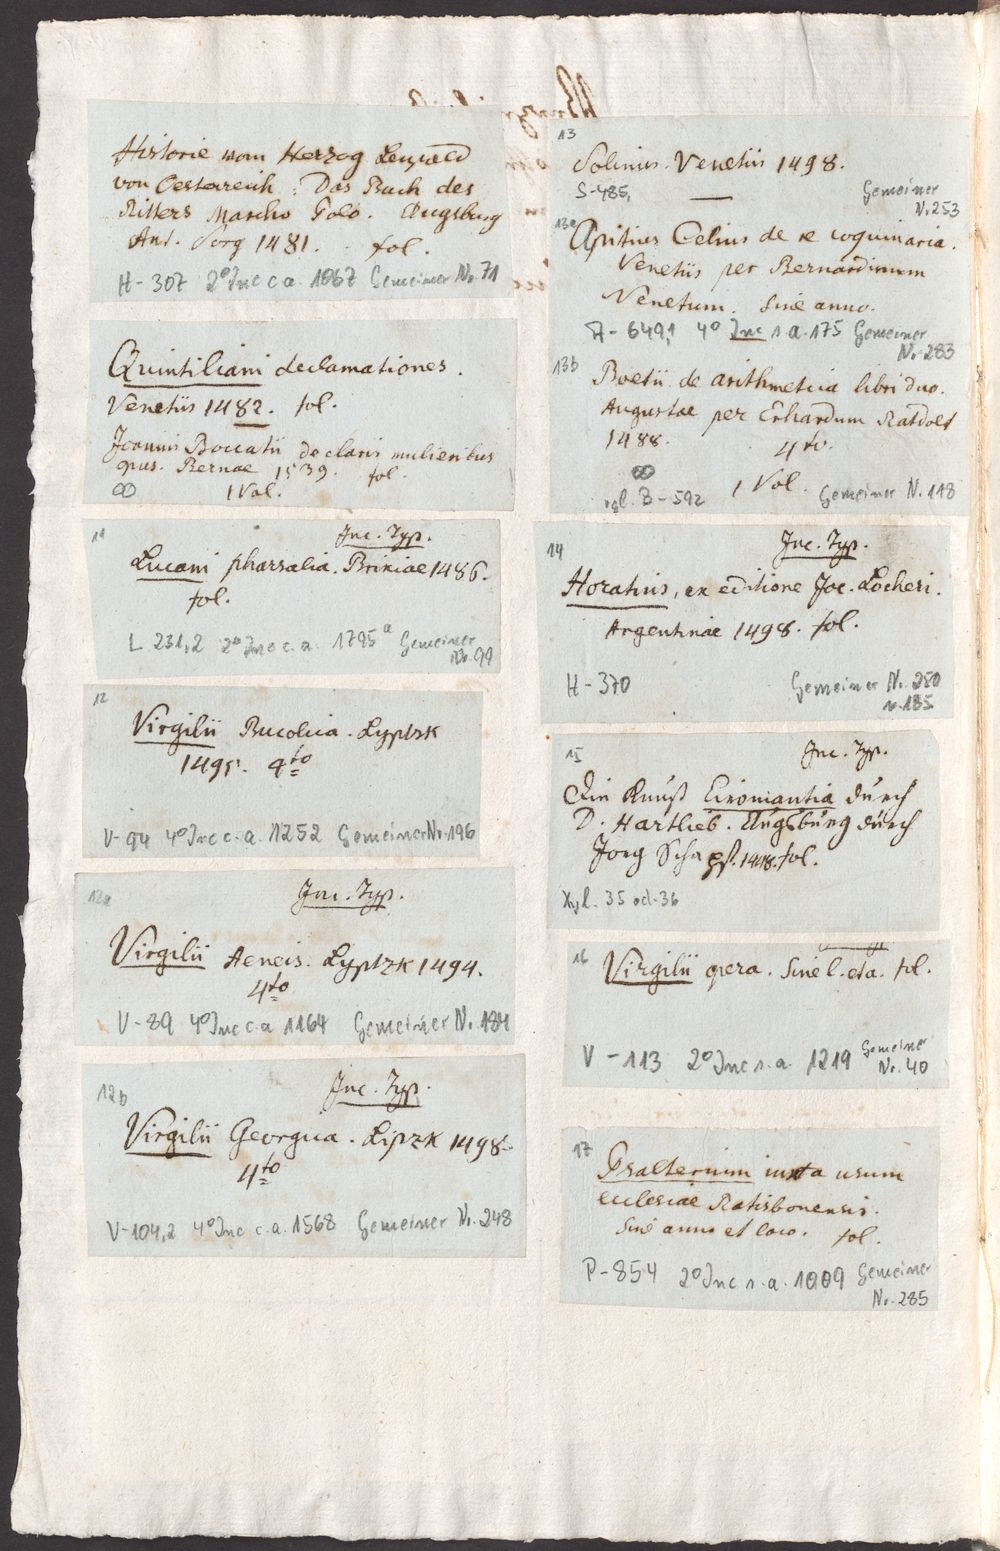 Historie vom Herzog Leupold
von Oesterreich. Das Buch des
Ritters Marcho Polo. Augsburg
Ant. Sorg 1481. fol.
H-307 2° Inc c a 1067 Gemeiner Nr. 71
Quintiliani declamationes.
Venetiis 1482. fol.
Joannis Boccatii de claris mulieribus
opus. Bernae 1539. fol.
∞ 1 Vol.
11
Inc. Typ.
Lucani pharsalia. Brixiae 1486.
fol.
L 231,2 2° Inc c. a. 1795 a Gemeiner
Nr. 99
12
Virgilii Bucolica. Lyptzk
1495. 4to
V-94 4° Inc c. a. 1252 Gemeiner Nr. 196
12a
Inc. Typ.
Virgilii Aeneis. Lyptzk 1494.
4to
V-89 4° Inc c. a 1164 Gemeiner Nr. 184
12b
Inc. Typ.
Virgilii Georgica. Lipzk 1498.
4to
V-104,2 4° Inc c. a. 1568 Gemeiner Nr. 248
13
Solinus. Venetiis 1498.
S-485,
Gemeiner
Nr. 253
13a
Apitius Celius de re coquinaria.
Venetiis per Bernardinum
Venetum. Sine anno.
A-649,1 4° Inc s. a. 175 Gemeiner
Nr. 283
13b
Boetii de arithmetica libri duo.
Augustae per Erhardum Ratdolt
1488. 4to.
∞ 1 Vol.
vgl. B-592 Gemeiner Nr. 118
14
Inc. Typ.
Horatius, ex editione Jac. Locheri.
Argentinae 1498. fol.
H-370 Gemeiner Nr. 250
u. 185
15
Inc. Typ.
Die Kunst Ciromantia durch
D. Hartlieb. Augsburg durch
Jorg Schapff. 1448. fol.
Xyl. 35 od. 36
16
Virgilii opera. Sine l. et a. fol.
V-113 2° Inc s. a. 1219 Gemeiner
Nr. 40
17
Psalterium iuxta usum
ecclesiae Ratisbonensis.
Sine anno et loco. fol.
P-854 2° Inc s. a. 1009 Gemeiner
Nr. 285